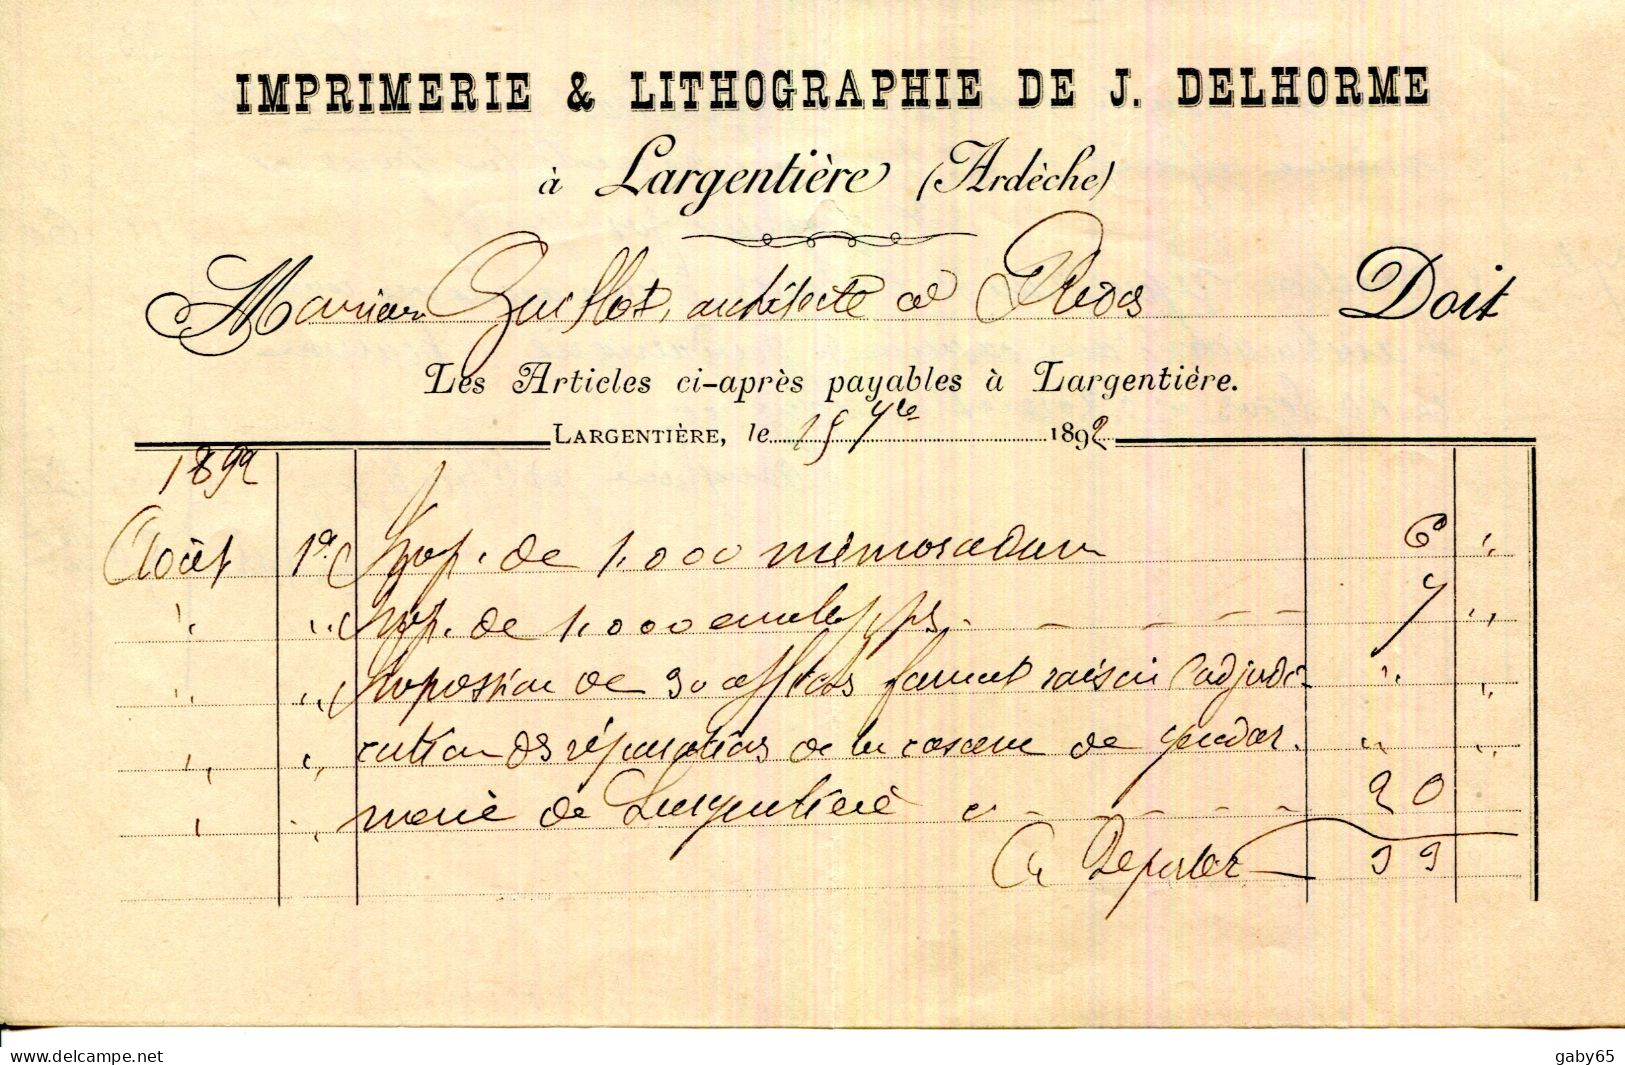 IMPRIMERIE & LITHOGRAPHIE DE J. DELHORME
à Largentière (Ardèche)
Monsieur Guillot, architecte à Privas Doit
Les Articles ci-après payables à Largentière.
LARGENTIÈRE, le 15 7bre 1892
1892
Août 1er Imp. de 1.000 mémorandum 6 "
" " Imp. de 1.000 enveloppes 7 "
" " Impression de 30 affiches format raisin l'adjudi- " "
" " cation des réparations de la caserne de gendar- " "
" " merie de Largentière 20
A Reporter 33
www.delcampe.net
gaby65